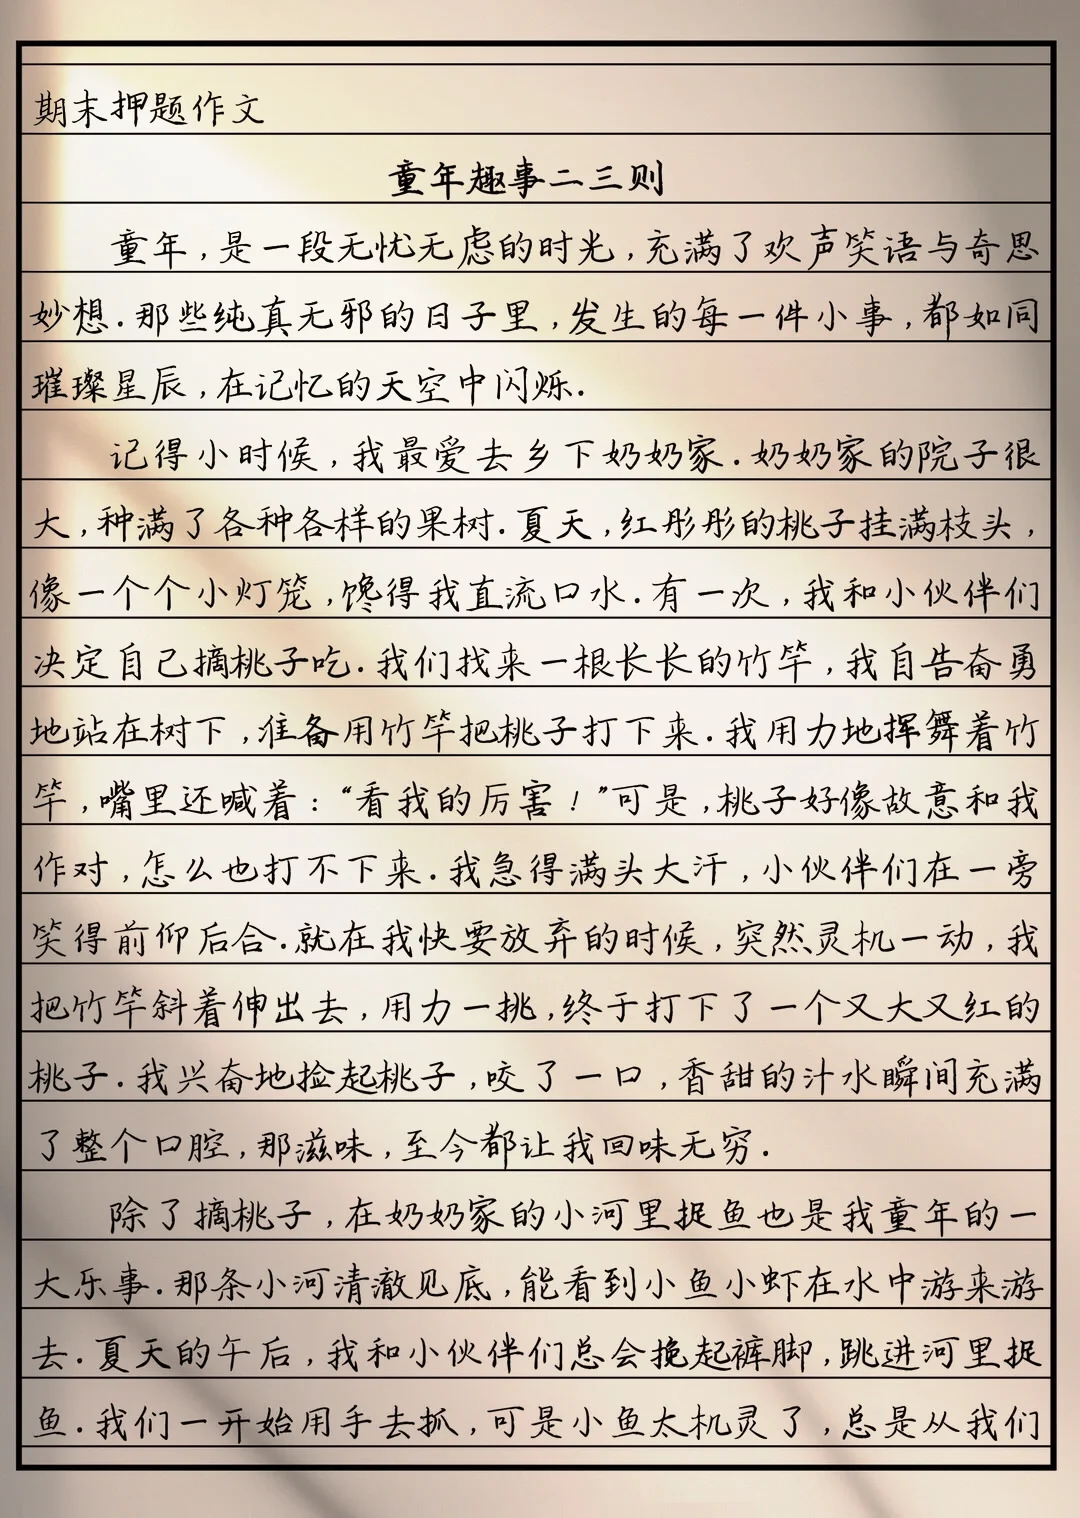 期末押题作文
童年趣事二三则
童年,是一段无忧无虑的时光,充满了欢声笑语与奇思
妙想.那些纯真无邪的日子里,发生的每一件小事,都如同
璀璨星辰,在记忆的天空中闪烁.
记得小时候,我最爱去乡下奶奶家.奶奶家的院子很
大,种满了各种各样的果树.夏天,红彤彤的桃子挂满枝头,
像一个个小灯笼,馋得我直流口水.有一次,我和小伙伴们
决定自己摘桃子吃.我们找来一根长长的竹竿,我自告奋勇
地站在树下,准备用竹竿把桃子打下来.我用力地挥舞着竹
竿,嘴里还喊着:“看我的厉害!”可是,桃子好像故意和我
作对,怎么也打不下来.我急得满头大汗,小伙伴们在一旁
笑得前仰后合.就在我快要放弃的时候,突然灵机一动,我
把竹竿斜着伸出去,用力一挑,终于打下了一个又大又红的
桃子.我兴奋地捡起桃子,咬了一口,香甜的汁水瞬间充满
了整个口腔,那滋味,至今都让我回味无穷.
除了摘桃子,在奶奶家的小河里捉鱼也是我童年的一
大乐事.那条小河清澈见底,能看到小鱼小虾在水中游来游
去.夏天的午后,我和小伙伴们总会挽起裤脚,跳进河里捉
鱼.我们一开始用手去抓,可是小鱼太机灵了,总是从我们